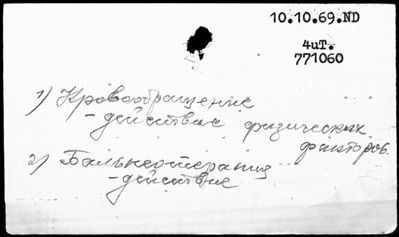 10.10.69.ND
4uT.
771060
1) Кровообращение
- действие физических
факторов.
2) Бальнеотерапия
- действие